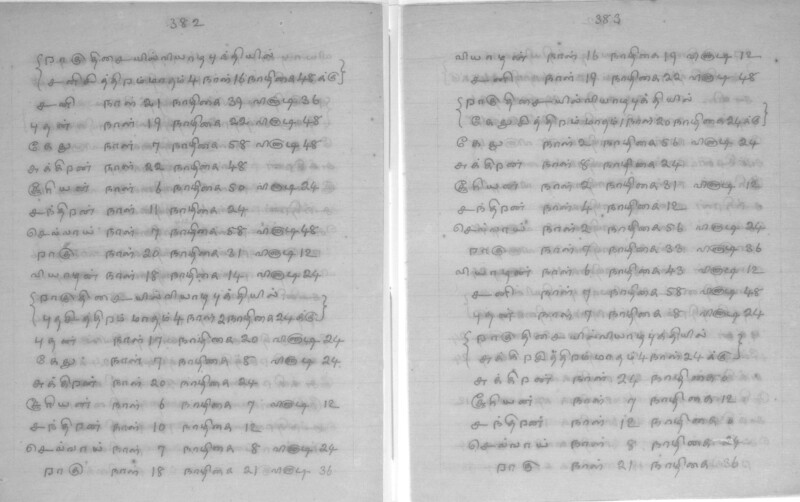 382
{ராகு திசையில் வியாழபுத்தியில்
{சனி சித்திரம் மாதம் 4 நாள் 16 நாழிகை 48 க்கு}
சனி நாள் 21 நாழிகை 39 விநாடி 36
புதன் நாள் 19 நாழிகை 22 விநாடி 48
கேது நாள் 7 நாழிகை 58 விநாடி 48
சுக்கிரன் நாள் 22 நாழிகை 48
சூரியன் நாள் 6 நாழிகை 50 விநாடி 24
சந்திரன் நாள் 11 நாழிகை 24
செவ்வாய் நாள் 7 நாழிகை 58 விநாடி 48
ராகு நாள் 20 நாழிகை 31 விநாடி 12
வியாழன் நாள் 18 நாழிகை 14 விநாடி 24
{ராகு திசையில் வியாழபுத்தியில்
{புதசித்திரம் மாதம் 4 நாள் 2 நாழிகை 24 க்கு}
புதன் நாள் 17 நாழிகை 20 விநாடி 24
கேது நாள் 7 நாழிகை 8 விநாடி 24
சுக்கிரன் நாள் 20 நாழிகை 24
சூரியன் நாள் 6 நாழிகை 7 விநாடி 12
சந்திரன் நாள் 10 நாழிகை 12
செவ்வாய் நாள் 7 நாழிகை 8 விநாடி 24
ராகு நாள் 18 நாழிகை 21 விநாடி 36
383
வியாழன் நாள் 16 நாழிகை 19 விநாடி 12
சனி நாள் 19 நாழிகை 22 விநாடி 48
{ராகு திசையில் வியாழபுத்தியில்
{கேது சித்திரம் மாதம் 1 நாள் 20 நாழிகை 24 க்கு}
கேது நாள் 2 நாழிகை 56 விநாடி 24
சுக்கிரன் நாள் 8 நாழிகை 24
சூரியன் நாள் 2 நாழிகை 31 விநாடி 12
சந்திரன் நாள் 4 நாழிகை 12
செவ்வாய் நாள் 2 நாழிகை 56 விநாடி 24
ராகு நாள் 7 நாழிகை 33 விநாடி 36
வியாழன் நாள் 6 நாழிகை 43 விநாடி 12
சனி நாள் 7 நாழிகை 58 விநாடி 48
புதன் நாள் 7 நாழிகை 8 விநாடி 24
{ராகு திசையில் வியாழபுத்தியில்
{சுக்கிரசித்திரம் மாதம் 4 நாள் 24 க்கு}
சுக்கிரன் நாள் 24 நாழிகை
சூரியன் நாள் 7 நாழிகை 12
சந்திரன் நாள் 12 நாழிகை
செவ்வாய் நாள் 8 நாழிகை 24
ராகு நாள் 21 நாழிகை 36